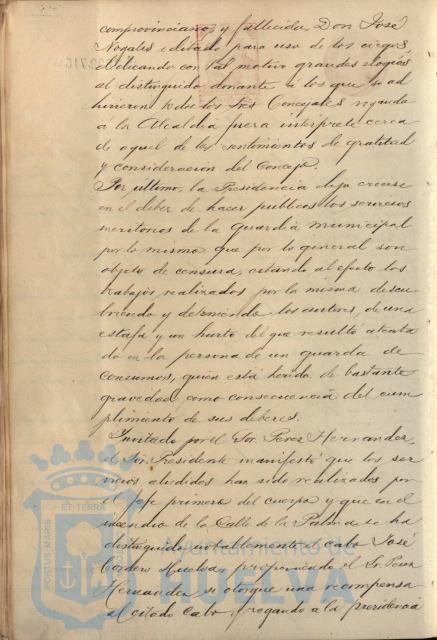 comprovinciano y fallecido Don José
Nogales editado para uso de los ciegos,
dedicando con tal motivo grandes elogios
al distinguido donante á los que se ad
hirieron todos los Sres Concejales rogando
á la Alcaldia fuera intérprete cerca
de aquel de los sentimientos de gratitud
y consideración del Concejo.
Por último, la Presidencia dijo creerse
en el deber de hacer públicos los servicios
meritorios de la guardia municipal
por lo mismo que por lo general son
objeto de censura, citando al efecto los
trabajos realizados por la misma descu
briendo y deteniendo los autores, de una
estafa y un hurto del que resultó atenta
do en la persona de un guarda de
consumos, quien está herido de bastante
gravedad como consecuencia del cum
plimiento de sus deberes.
Invitado por el Sor Perez Hernandez,
el Sor Presidente manifestó que los ser
vicios aludidos han sido realizados por
el Jefe primero del cuerpo y que en el
incendio de la Calle de la Palma se ha
distinguido notablemente el cabo José
Cordero Huelva, proponiendo el Sr Perez
Hernandez se otorgue una recompensa
al citado Cabo y rogando a la presidencia
PORTUS MARIS
ET TERRÆ
Ayuntamiento de
HUELVA